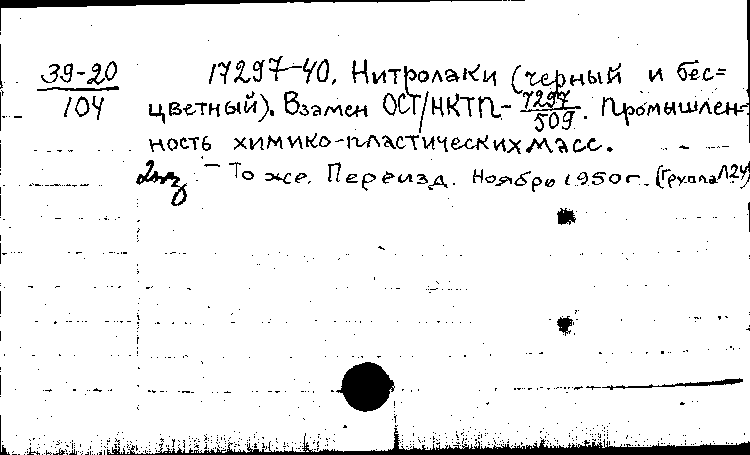 39-20 17297-40. Нитролаки (черный и бес=
104 цветный). Взамен ОСТ/НКТП-7297/509. Промышлен-
ность химико-пластических масс.
2экз — То же. Переизд. Ноябрь 1950г. (Группа Л24)